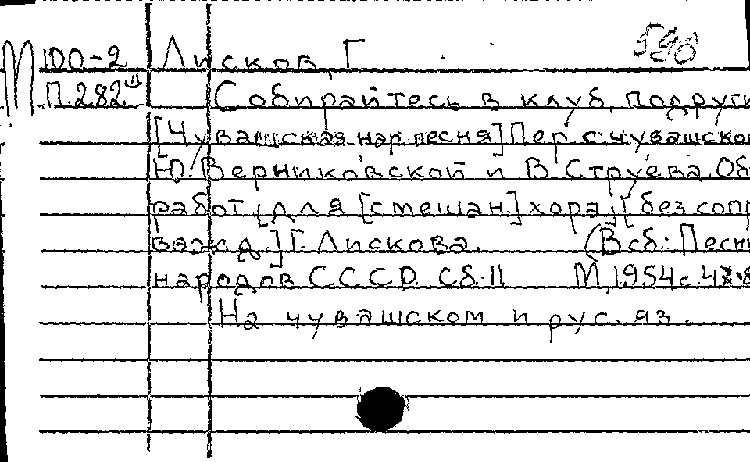 М 100-2 Лисков, Г. 598
П 282 Собирайтесь в клуб, подруги
[Чувашская нар. песня] Пер. с чувашског
Ю. Верниковской и В. Струева. Об
работ. для [смешан] хора [без сопр
вожд.] Г. Лискова. (В сб: Песни
народов СССР. Сб. II М, 1954 с.
На чувашском и рус. яз.